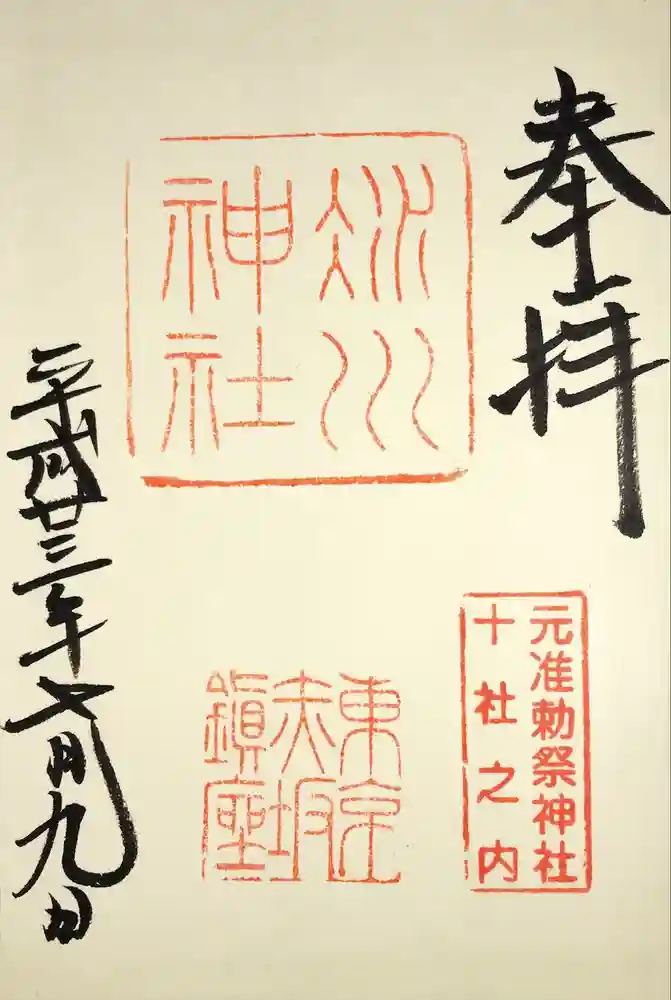 奉拝
氷川
神社
元准勅祭神社
十社之内
東京
赤坂
鎮座
平成廿三年七月九日